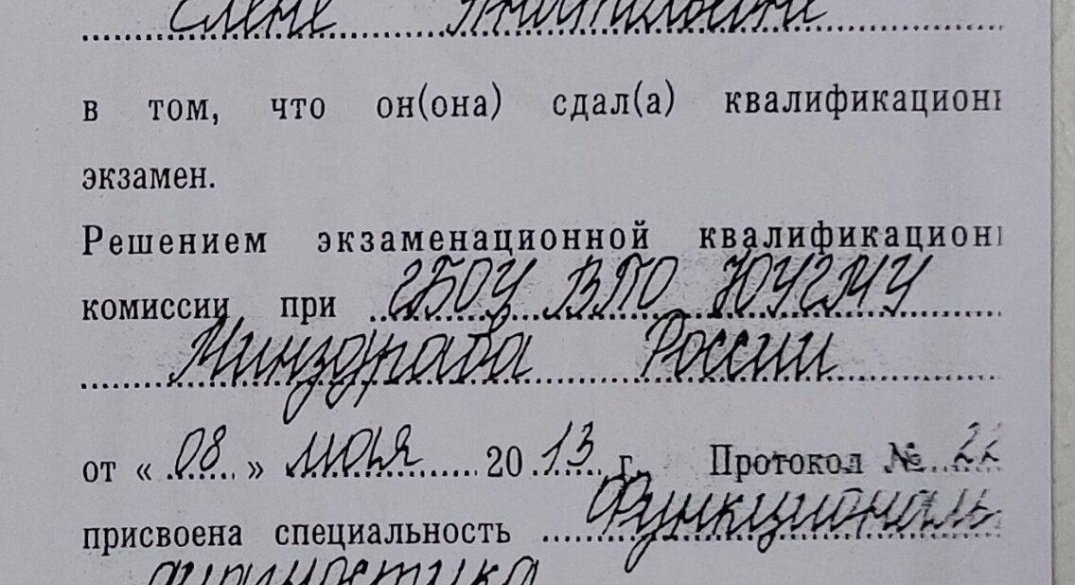 Елене Анатольевне
в том, что он(она) сдал(а) квалификационн
экзамен.
Решением экзаменационной квалификационн
комиссии при ГБОУ ВПО ЮУГМУ
Минздрава России
от « 08 » мая 2013 г. Протокол № 22
присвоена специальность Функциональ
диагностика